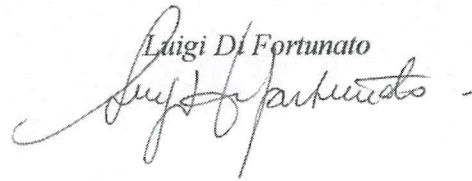 Luigi Di Fortunato
Luigi Di Fortunato